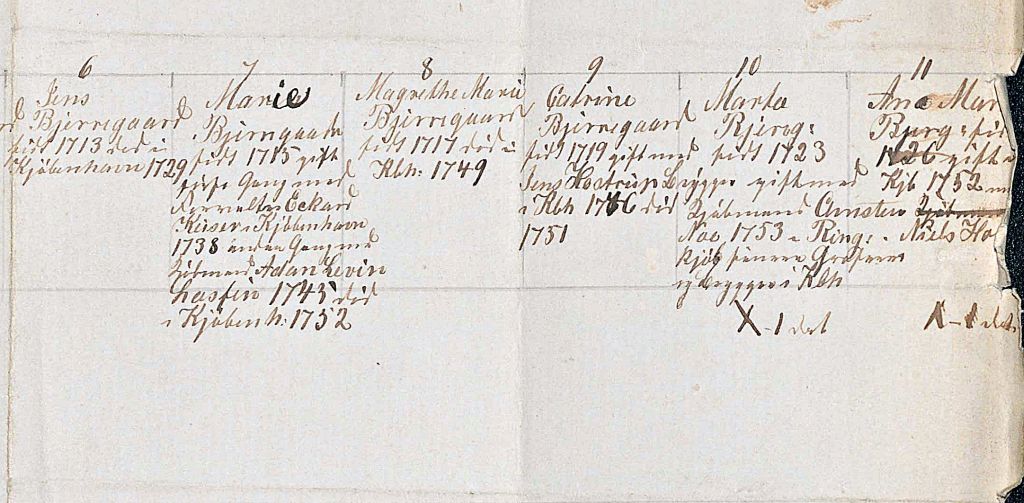 6
Jens
Bjerregaard
født 1713 død i
Kjöbenhavn 1729
7
Marie
Bjerregaard
født 1715 gift
første Gang med
Forvalter Eckard
Keiser i Kjöbenhavn
1738 anden Gang med
Kjöbmand Adan Levin
1745 död
i Kjöbenh: 1752
8
Magrethe Marie
Bjerregaard
født 1717 död i
Kbh: 1749
9
Catrine
Bjerregaard
født 1719 gift med
Jens Hostrup Brygger
i Kbh 1746 död
1751
10
Marta
Bjerrg:
født 1723
gift med
Kjöbmand Christen
1753 i Ring:
Kjöb senere
og Brygger i Kbh
X - 1 dat
11
Ane Mar
Bjerg: fød
1726 gift i
Kjb 1752 m
Kjöbman
Niels Ho
X - 1 dat